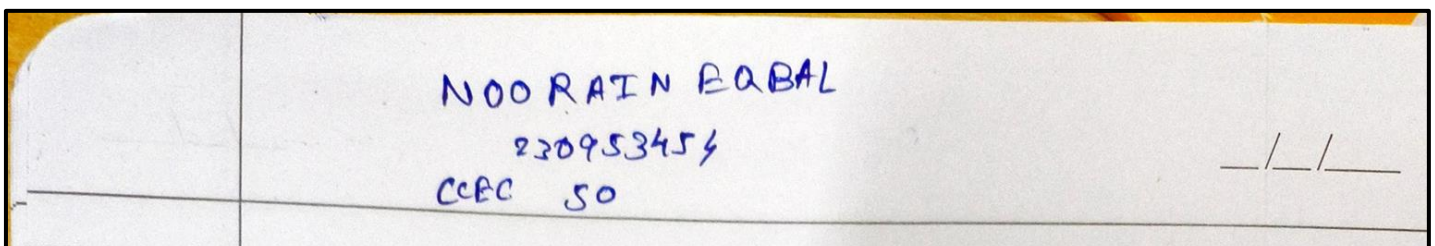 NOORAIN EQBAL
230953454
CCEC 50
__/__/____